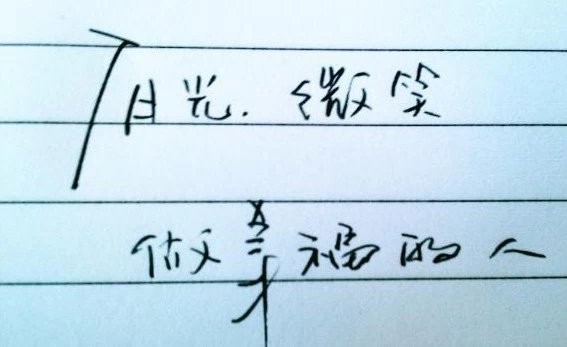 阳光.微笑
做幸福的人